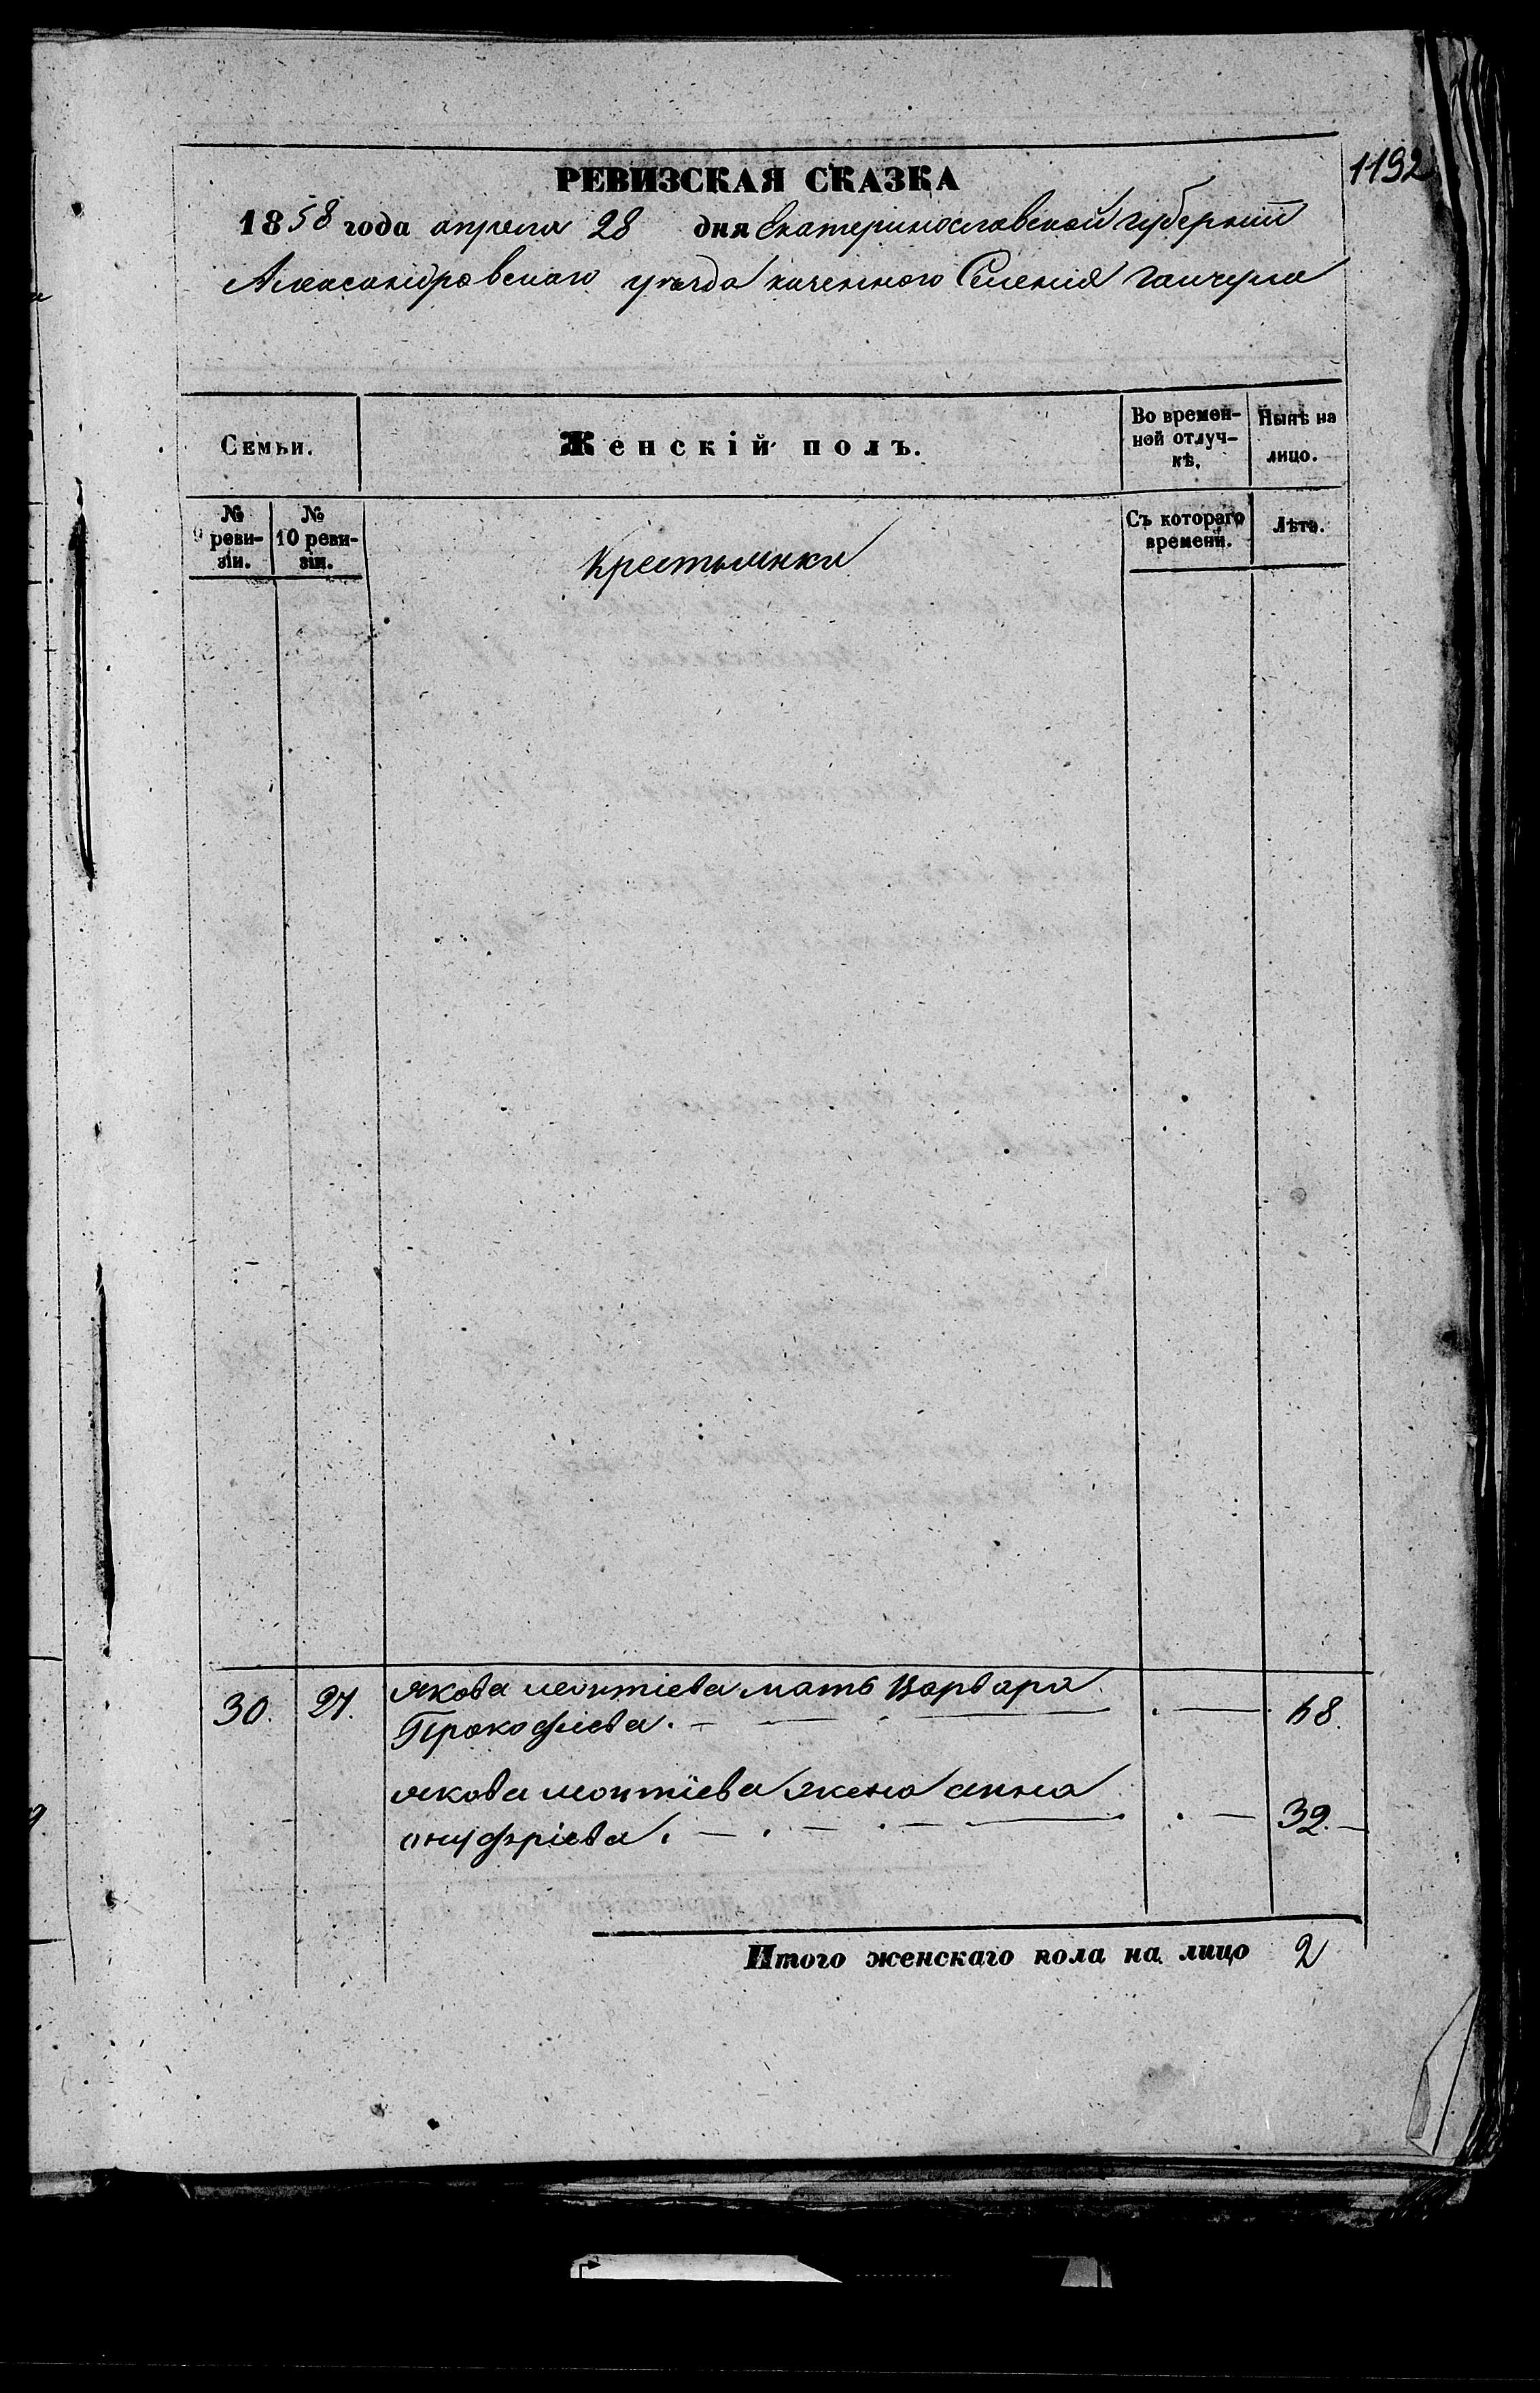 1192
РЕВИЗСКАЯ СКАЗКА
1858 года апреля 28 дня Екатеринославской губернии
Александровскаго уезда казенного Селения гайчула
Семьи.
Женскій полъ.
Во времен-
ной отлуч-
кѣ.
Нынѣ на
лицо.
№
9 реви-
зіи.
№
10 реви-
зіи.
Крестьянки
Съ котораго
времени.
Лѣта.
30. 27. якова леонтіева мать Варвара
Прокофіева. 68.
якова леонтіева жена анна
онуфріева. 32.
Итого женскаго пола на лицо 2